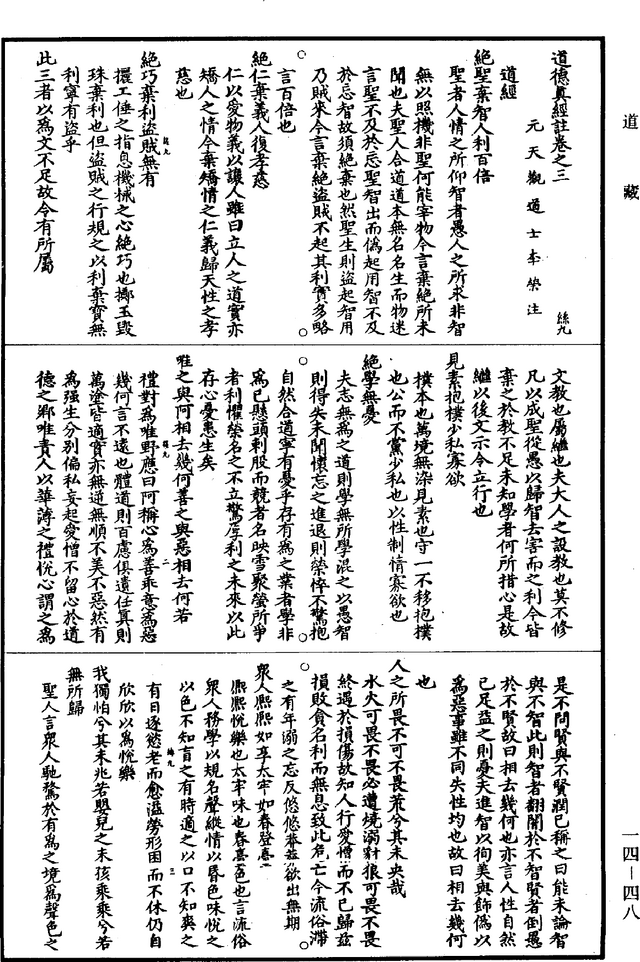 道藏
道德真經註卷之三
絲九
元天觀道士李榮注
道經
絕聖棄智人利百倍
聖者人情之所仰智者愚人之所求非智
無以照機非聖何能宰物今言棄絕所未
聞也夫聖人合道道本無名名生而物迷
言聖不及於忘聖智出而偽起用智不及
於忘智故須絕棄也然聖生則盜起智用
乃賊來今言棄絕盜賊不起其利實多略
言百倍也
絕仁棄義人復孝慈
仁以愛物義以讓人雖曰立人之道實亦
矯人之情今棄矯情之仁義歸天性之孝
慈也
絕巧棄利盜賊無有
擺工倕之指息機械之心絕巧也擲玉毀
珠棄利也但盜賊之行規之以利棄寶無
利寧有盜乎
此三者以為文不足故令有所屬
文教也屬繼也夫大人之設教也莫不修
凡以成聖從愚以歸智去害而之利今皆
棄之於教不足未知學者何所措心是故
繼以後文示令立行也
見素抱樸少私寡欲
樸本也萬境無染見素也守一不移抱樸
也公而不黨少私也以性制情寡欲也
絕學無憂
夫志無為之道則學無所學混之以愚智
則得失未聞懷忘之進退則榮悴不驚抱
自然合道寧有憂乎存有為之業者學非
為已懸頭刺股而競者名映雪聚螢所爭
者利懼榮名之不立驚厚利之未來以此
存心憂患生矣
唯之與阿相去幾何善之與惡相去何若
禮對為唯野應曰阿稱心為善乖意為惡
幾何言不遠也體道則百慮俱遣任真則
萬塗皆適實亦無逆無順不美不惡然有
為強生分別偏私妄起愛憎不留心於道
德之鄉唯責人以華薄之禮悅心謂之為
是不問賢與不賢潤己稱之曰能未論智
與不智此則智者翻闇於不智賢者倒愚
於不賢故曰相去幾何也亦言人性自然
已足益之則憂夫進智以徇美與飾偽以
為惡事雖不同失性均也故曰相去幾何
也
人之所畏不可不畏荒兮其未央哉
水火可畏不畏必遭境溺豺狼可畏不畏
終遇於損傷故知人行愛憎而不已歸茲
損敗貪名利而無息致此危亡今流俗滯
之有年溺之忘反悠悠莽莽欲出無期
眾人熙熙如享太牢如春登臺
熙熙悅樂也太牢味也春臺色也言流俗
眾人務學以規名聲縱情以昏色味悅之
以色不知盲之有時適之以口不知爽之
有日逐慾老而愈溢勞形困而不休仍自
欣欣以為悅樂
我獨怕兮其未兆若嬰兒之未孩乘乘兮若
無所歸
聖人言眾人馳騖於有為之境為聲色之
一四—四八